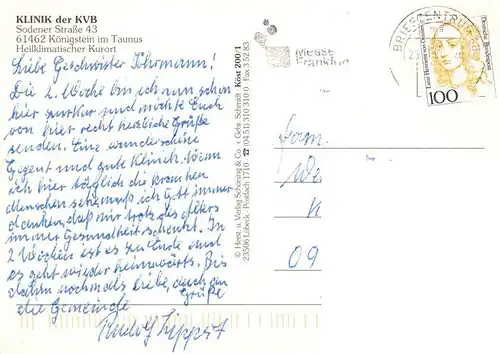 KLINIK der KVB
Sodener Straße 43
61462 Königstein im Taunus
Heilklimatischer Kurort
Liebe Geschwister
Die 2. Woche bin ich nun schon
hier zur Kur und möchte Euch
von hier recht herzliche Grüße
senden. Eine wunderschöne
Gegend und gute Klinik. Wenn
ich hier täglich die kranken
Menschen sehe muß ich Gott immer
danken, daß mir trotz des Alters
immer Gesundheit schenkt. In
2 Wochen ist es zu Ende und
es geht wieder heimwärts. Bis
dahin nochmals liebe, auch an
die Gemeinde Grüße
Rudolf Lippert
© Herst. u. Verlag Schöning & Co. + Gebr. Schmidt Köst 200/1
23506 Lübeck · Postfach 1710 · ☎ (04 51) 310 310 Fax 3 52 83
Messe
Frankfurt
BRIEFZENTRUM
Deutsche Bundespost
100
09